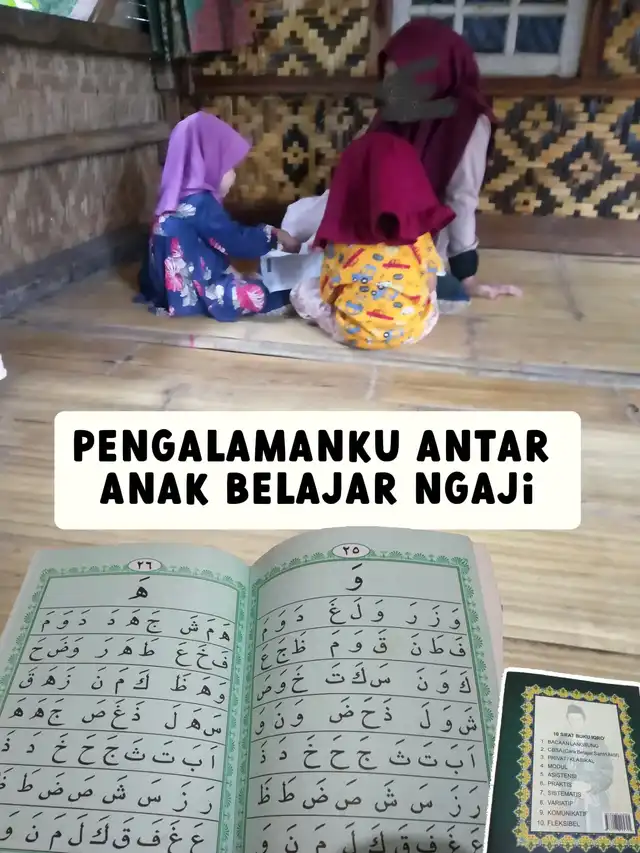 PENGALAMANKU ANTAR
ANAK BELAJAR NGAJi
٢٥
وَ
وَ زَ رَ وَ لَ غَ دَ وَ مَ
فَ طَ نَ قَ وَ مَ ظَ جَ عَ
كَ وَ نَ سَ كَ تَ خَ وَ صَ
شَ وَ لَ ذَ حَ ضَ وَ نَ وَ
اَ بَ تَ ثَ جَ حَ خَ ذَ
رَ زَ سَ شَ صَ ضَ طَ ظَ
غَ فَ قَ كَ لَ مَ نَ وَ
٢٦
هَ
هَ مَ شَ جَ هَ دَ دَ وَ مَ
فَ خَ عَ طَ هَ رَ وَ ضَ حَ
وَ هَ ظَ كَ مَ نَ زَ هَ قَ
سَ هَ لَ ذَ غَ صَ جَ هَ هَ
اَ بَ تَ ثَ جَ حَ خَ دَ ذَ
رَ زَ سَ شَ صَ ضَ طَ ظَ
عَ غَ فَ قَ كَ لَ مَ نَ وَ
10 SIFAT BUKU IQRO'
1. BACAAN LANGSUNG
2. CBSA (Cara Belajar Santri Aktif)
3. PRIVAT / KLASIKAL
4. MODUL
5. ASISTENSI
6. PRAKTIS
7. SISTEMATIS
8. VARIATIF
9. KOMUNIKATIF
10. FLEKSIBEL